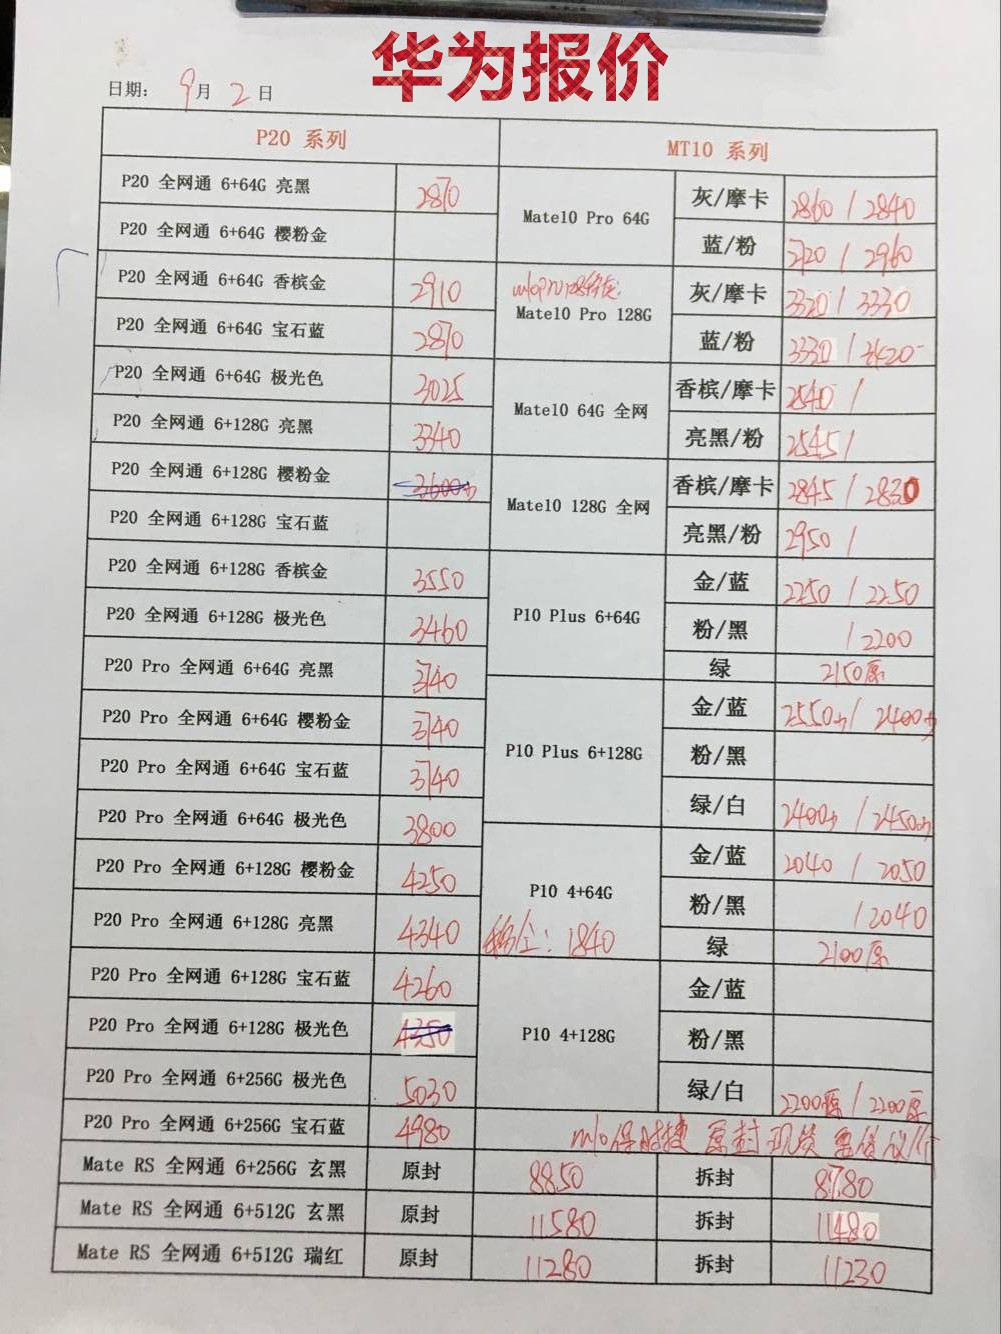 华为报价
日期： 9月 2日
P20 系列 MT10 系列
P20 全网通 6+64G 亮黑 2870
P20 全网通 6+64G 樱粉金
P20 全网通 6+64G 香槟金 2910
P20 全网通 6+64G 宝石蓝 2870
P20 全网通 6+64G 极光色 3025
P20 全网通 6+128G 亮黑 3340
P20 全网通 6+128G 樱粉金
P20 全网通 6+128G 宝石蓝
P20 全网通 6+128G 香槟金 3550
P20 全网通 6+128G 极光色 3460
P20 Pro 全网通 6+64G 亮黑 3740
P20 Pro 全网通 6+64G 樱粉金 3740
P20 Pro 全网通 6+64G 宝石蓝 3740
P20 Pro 全网通 6+64G 极光色 3800
P20 Pro 全网通 6+128G 樱粉金 4250
P20 Pro 全网通 6+128G 亮黑 4340
P20 Pro 全网通 6+128G 宝石蓝 4260
P20 Pro 全网通 6+128G 极光色 4350
P20 Pro 全网通 6+256G 极光色 5030
P20 Pro 全网通 6+256G 宝石蓝 4980
Mate10 Pro 64G
灰/摩卡 2860 / 2840
蓝/粉 2720 / 2960
Mate10 Pro 128G
灰/摩卡 3320 / 3330
蓝/粉 3330 / 3420
Mate10 64G 全网
香槟/摩卡 2540 /
亮黑/粉 2545 /
Mate10 128G 全网
香槟/摩卡 2845 / 2830
亮黑/粉 2950 /
P10 Plus 6+64G
金/蓝 2250 / 2250
粉/黑 / 2200
绿 2150原
P10 Plus 6+128G
金/蓝 2550 / 2400
粉/黑
绿/白 2400 / 2450
P10 4+64G
1840
金/蓝 2040 / 2050
粉/黑 / 2040
绿 2100原
P10 4+128G
金/蓝
粉/黑
绿/白 2200原 / 2200原
m10保时捷 原封现货
Mate RS 全网通 6+256G 玄黑 原封 8850 拆封 8780
Mate RS 全网通 6+512G 玄黑 原封 11580 拆封 11480
Mate RS 全网通 6+512G 瑞红 原封 11280 拆封 11230